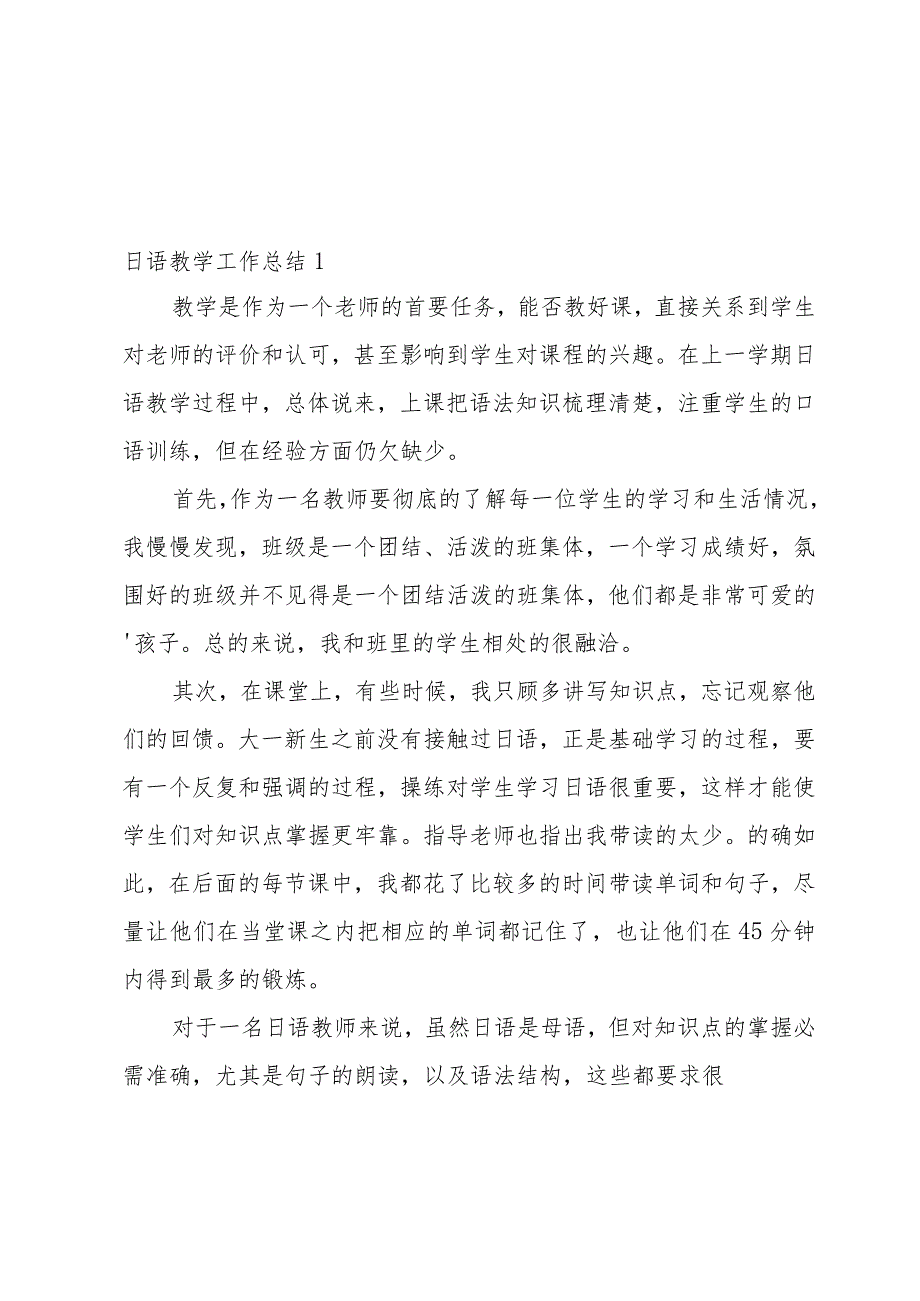 日语教学工作总结1
教学是作为一个老师的首要任务，能否教好课，直接关系到学生
对老师的评价和认可，甚至影响到学生对课程的兴趣。在上一学期日
语教学过程中，总体说来，上课把语法知识梳理清楚，注重学生的口
语训练，但在经验方面仍欠缺少。
首先，作为一名教师要彻底的了解每一位学生的学习和生活情况，
我慢慢发现，班级是一个团结、活泼的班集体，一个学习成绩好，氛
围好的班级并不见得是一个团结活泼的班集体，他们都是非常可爱的
'孩子。总的来说，我和班里的学生相处的很融洽。
其次，在课堂上，有些时候，我只顾多讲写知识点，忘记观察他
们的回馈。大一新生之前没有接触过日语，正是基础学习的过程，要
有一个反复和强调的过程，操练对学生学习日语很重要，这样才能使
学生们对知识点掌握更牢靠。指导老师也指出我带读的太少。的确如
此，在后面的每节课中，我都花了比较多的时间带读单词和句子，尽
量让他们在当堂课之内把相应的单词都记住了，也让他们在45分钟
内得到最多的锻炼。
对于一名日语教师来说，虽然日语是母语，但对知识点的掌握必
需准确，尤其是句子的朗读，以及语法结构，这些都要求很